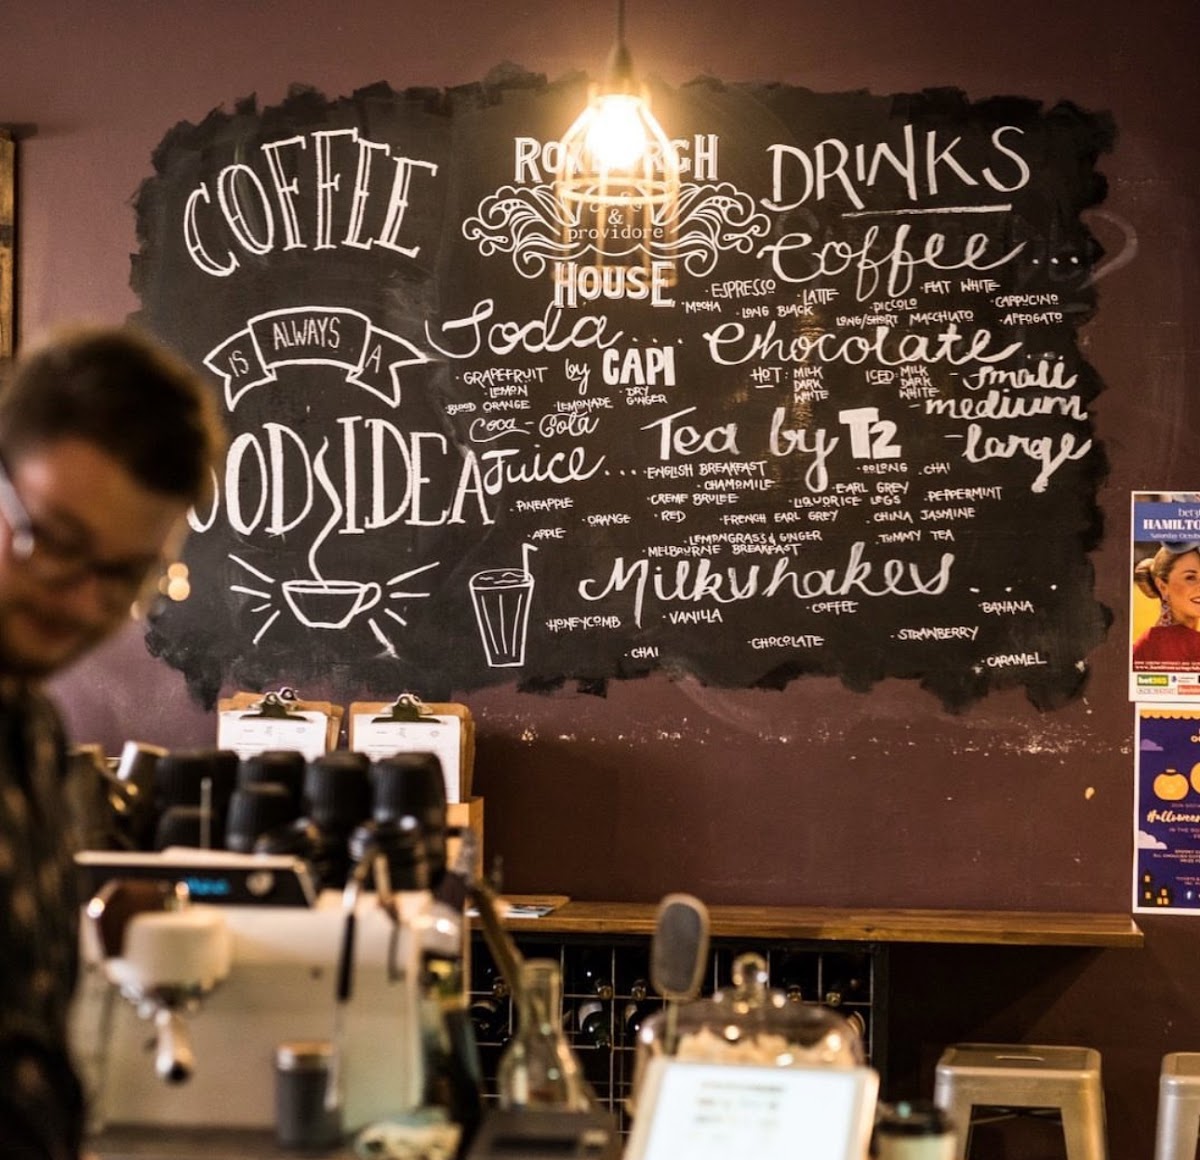 COFFEE
IS ALWAYS A
IDEA
HOUSE
& 
providore
DRINKS
Coffee...
· ESPRESSO · LATTE · FLAT WHITE
· MOCHA · LONG BLACK · PICCOLO · CAPPUCINO
LONG/SHORT MACCHIATO · AFFOGATO
Soda....
by CAPI
· GRAPEFRUIT
· LEMON · DRY GINGER
· BLOOD ORANGE · LEMONADE
Coca-Cola
Chocolate...
HOT: MILK DARK WHITE
ICED: MILK DARK WHITE
- small
- medium
- large
Juice....
· PINEAPPLE
· ORANGE
· APPLE
Tea by T2
· ENGLISH BREAKFAST · OOLONG · CHAI
· CHAMOMILE · EARL GREY
· CREME BRULEE · LIQUORICE LEGS · PEPPERMINT
· RED · FRENCH EARL GREY · CHINA JASMINE
· LEMONGRASS & GINGER · TUMMY TEA
· MELBOURNE BREAKFAST
Milkshakes...
· HONEYCOMB · VANILLA · COFFEE · BANANA
· CHAI · CHOCOLATE · STRAWBERRY
· CARAMEL
bet365